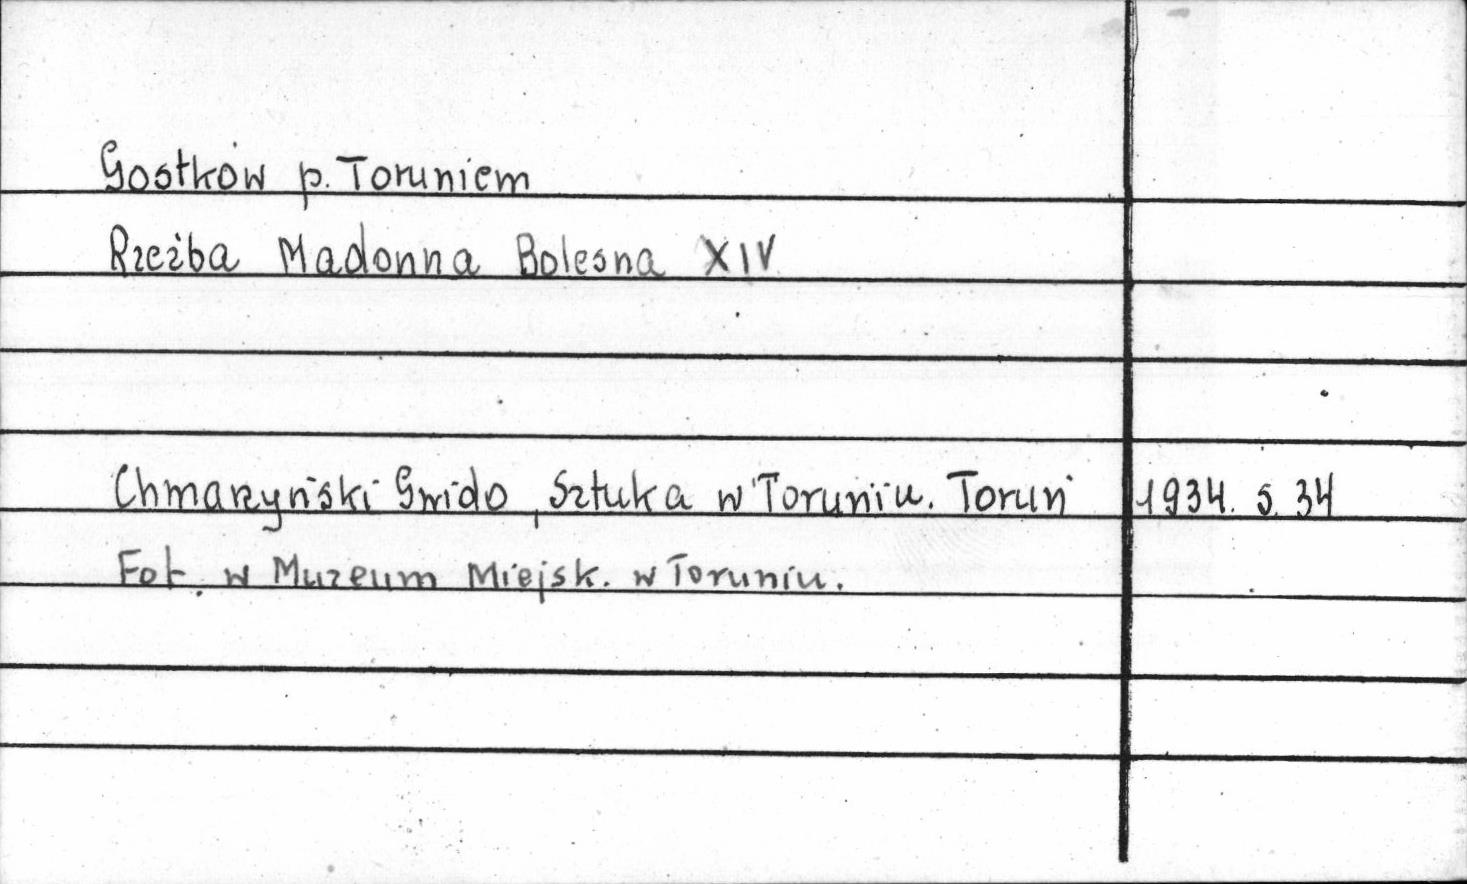 Gostków p. Toruniem
Rzeźba Madonna Bolesna XIV
Chmarzyński Gwido, Sztuka w Toruniu. Toruń 1934. s. 34
Fot. w Muzeum Miejsk. w Toruniu.